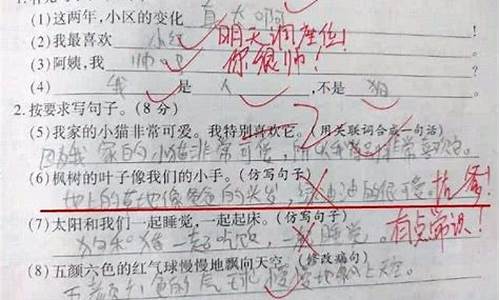 (1)这两年,小区的变化 真大啊
(2)我最喜欢 小红 明天调座位!
(3)阿姨,我 帅吗 你很帅!
(4) 我 是 人 ,不是 狗
2.按要求写句子。(8 分)
(5)我家的小猫非常可爱。我特别喜欢它。(用关联词合成一句话)
因为我家的小猫非常可爱,所以我非常喜欢它。
(6)枫树的叶子像我们的小手。(仿写句子)
地上的草地像爸爸的头发,绿油油的很可爱。找爹!
(7)太阳和我们一起睡觉,一起起床。(仿写句子)
狗和猪一起吃饭,一起睡觉。 有点常识!
(8)五颜六色的红气球慢慢地飘向天空。(修改病句)
五颜六色的气球慢慢地飘上天空。